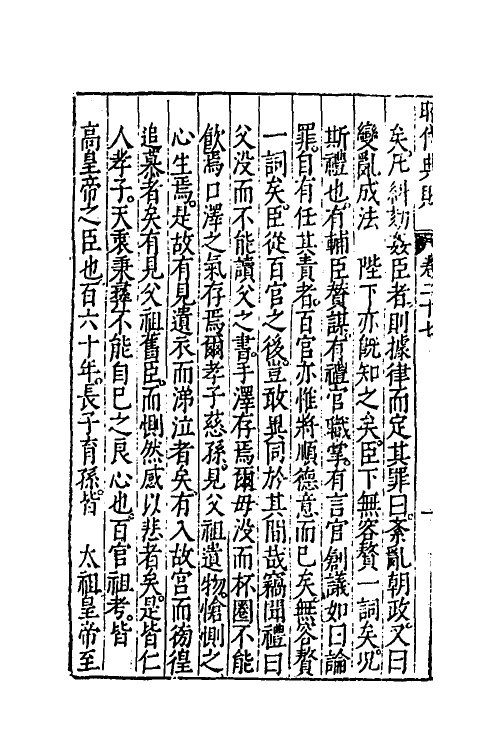 昭代典則 卷二十七
矣凡糾劾姦臣者則據律而定其罪曰紊亂朝政又曰
變亂成法 陛下亦旣知之矣臣下無容贅一詞矣况
斯禮也有輔臣贊謀有禮官職掌有言官創議如曰論
罪自有任其責者百官亦惟將順德意而已矣無容贅
一詞矣臣從百官之後豈敢異同於其間哉竊聞禮曰
父没而不能讀父之書手澤存焉爾母没而杯圈不能
飮焉口澤之氣存焉爾孝子慈孫見父祖遺物愴惻之
心生焉是故有見遺衣而涕泣者矣有入故宫而徬徨
追慕者矣有見父祖舊臣而惻然感以悲者矣是皆仁
人孝子天衷秉彞不能自已之良心也百官祖考皆
高皇帝之臣也百六十年長子育孫皆 太祖皇帝至